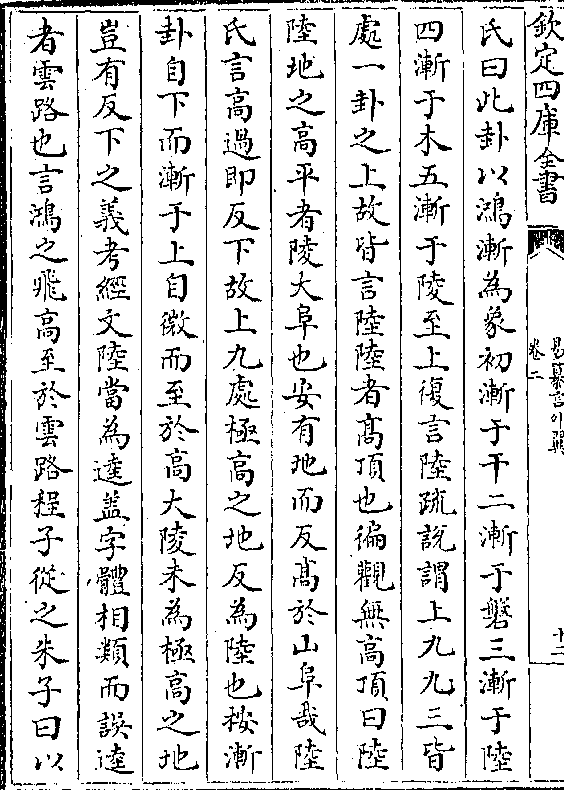 欽定四庫全書
易纂言外翼
卷二
十二
氏曰此卦以鴻漸為象初漸于干二漸于磐三漸于陸
四漸于木五漸于陵至上復言陸疏說謂上九九三皆
處一卦之上故皆言陸陸者髙頂也徧觀無高頂曰陸
陸地之高平者陵大阜也安有地而反髙於山阜哉陸
氏言高過即反下故上九處極高之地反為陸也按漸
卦自下而漸于上自微而至於高大陵未為極高之地
豈有反下之義考經文陸當為逵盖字體相類而誤逵
者雲路也言鴻之飛高至於雲路程子從之朱子曰以